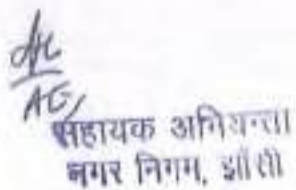 AE
सहायक अभियन्ता
नगर निगम, झाँसी